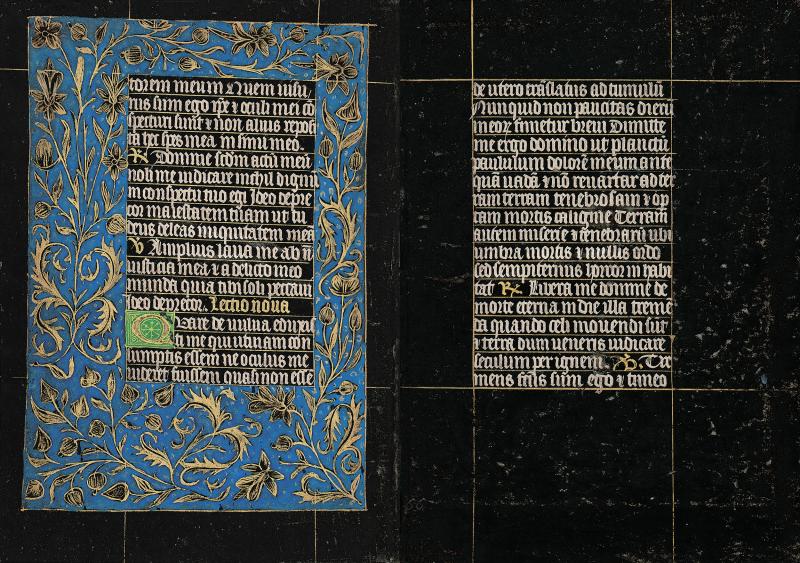 torem meum Quem visu
rus sum ego ip̃e ⁊ oculi mei cõ
specturi sunt ⁊ non alius repoſi
ta hec spes mea in sinu meo.
℟ Domine scdm̃ actũ meũ
noli me iudicare nichil dignũ
in conspectu tuo egi Ideo depre
cor maiestatem tuam ut tu
deus deleas iniquitatem meã
℣ Amplius laua me ab in̄
iusticia mea ⁊ a delicto meo
munda quia tibi soli peccaui
Ideo deprecor. Lectio nona
Quare de vulua eduxi
sti me qui utinam con
sumptus essem ne oculus me
videret fuissem quasi non esse
de utero trãslatus ad tumulũ
Nunquid non paucitas dierũ
meoꝝ finietur breui Dimitte
me ergo domine ut plangã
paululum dolorẽ meum ante
quã uadã ⁊ nõ reuertar ad ter
ram terram tenebrosam ⁊ op
tam mortis caligine Terram
autem miserie ⁊ tenebrarũ ubi
umbra mortis et nullus ordo
sed sempiternus horror inhabi
tat ℟ Libera me domine de
morte eterna in die illa treme
da quando celi mouendi sũt
⁊ terra dum ueneris iudicare
seculum per ignem ℣. Tre
mens factus sum ego ⁊ timeo